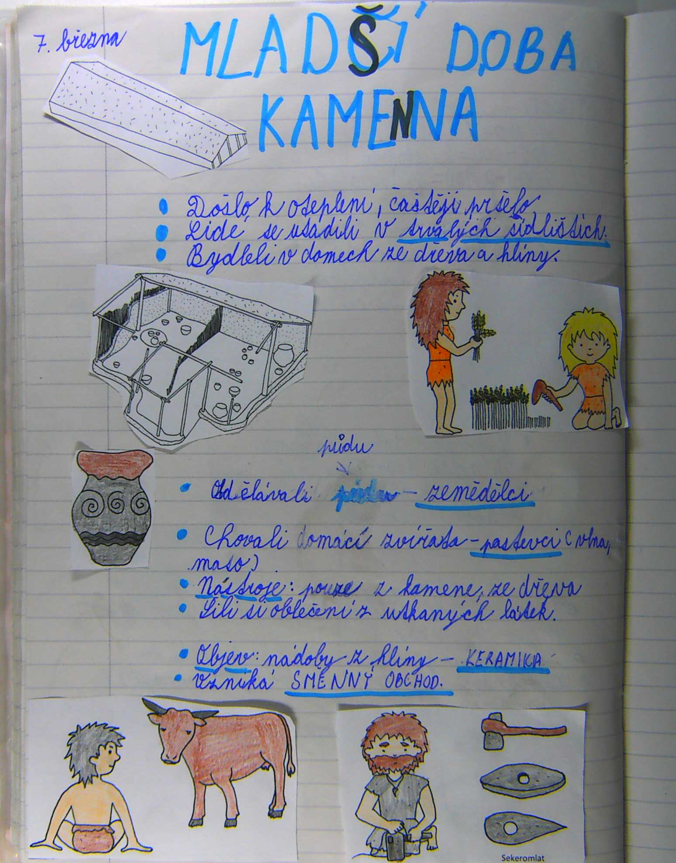 7. března
MLADŠÍ DOBA
KAMENNA
Došlo k oteplení, častěji pršelo
Lidé se usadili v trvalých sídlištích.
Bydleli v domech ze dřeva a hlíny.
půdu
Obdělávali půdu – zemědělci
Chovali domácí zvířata – pastevci (vlna,
maso)
Nástroje: pouze z kamene, ze dřeva
Šili si oblečení z utkaných látek.
Objev: nádoby z hlíny – KERAMIKA
Vzniká SMĚNNÝ OBCHOD.
Sekeromlat